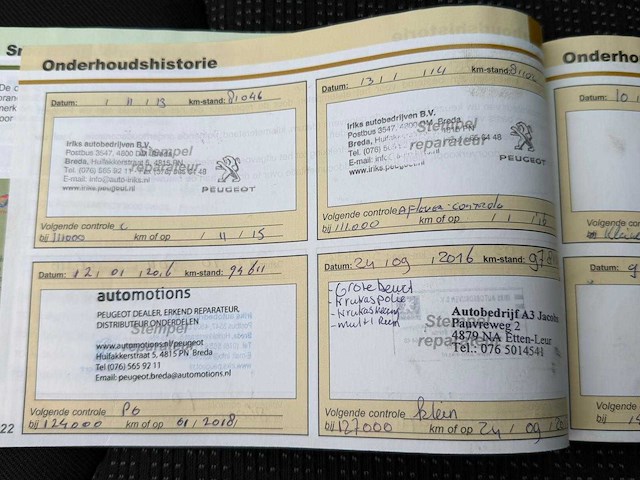 Onderhoudshistorie
Datum: 1 11 13 km-stand: 81046
Iriks autobedrijven B.V.
Postbus 3547, 4800 D
Breda, Huifakkerstraat 5, 4815 PN
Tel. (076) 565 92 11
E-mail: info@auto-iriks.nl
www.iriks.peugeot.nl
Stempel
reparateur
PEUGEOT
Volgende controle C
bij 111000 km of op 1 11 / 15
Datum: 13 1 1 14 km-stand:
Iriks autobedrijven B.V.
Postbus 3547, 4800 DM Breda
Breda, Huifakkerstraat
Tel. (076)
E-mail:
www.iriks.peugeot.nl
Stempel
reparateur
PEUGEOT
Volgende controle Aflever-controle
bij 111.000 km of op
Datum: 12, 01 ,2016 km-stand: 94611
automotions
PEUGEOT DEALER, ERKEND REPARATEUR,
DISTRIBUTEUR ONDERDELEN
Stempel
www.automotions.nl/peugeot
Huifakkerstraat 5, 4815 PN Breda
Tel (076) 565 92 11
Email: peugeot.breda@automotions.nl
Volgende controle P6
bij 124000 km of op 01 / 2018
Datum: 24 / 09 / 2016 km-stand: 97
- Grote beurt
- Krukaspoelie
- multi Riem
Stempel
Autobedrijf A3 Jacobs
Pauvreweg 2
4879 NA Etten-Leur
Tel.: 076 5014541
Volgende controle klein
bij 127000 km of op 24 / 09 / 20
22
Onderho
Datum: 10
Volgende
bij
Datum: 9
Volgende
bij